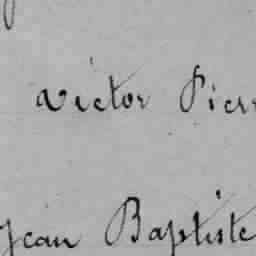 Victor Pierr
Jean Baptiste